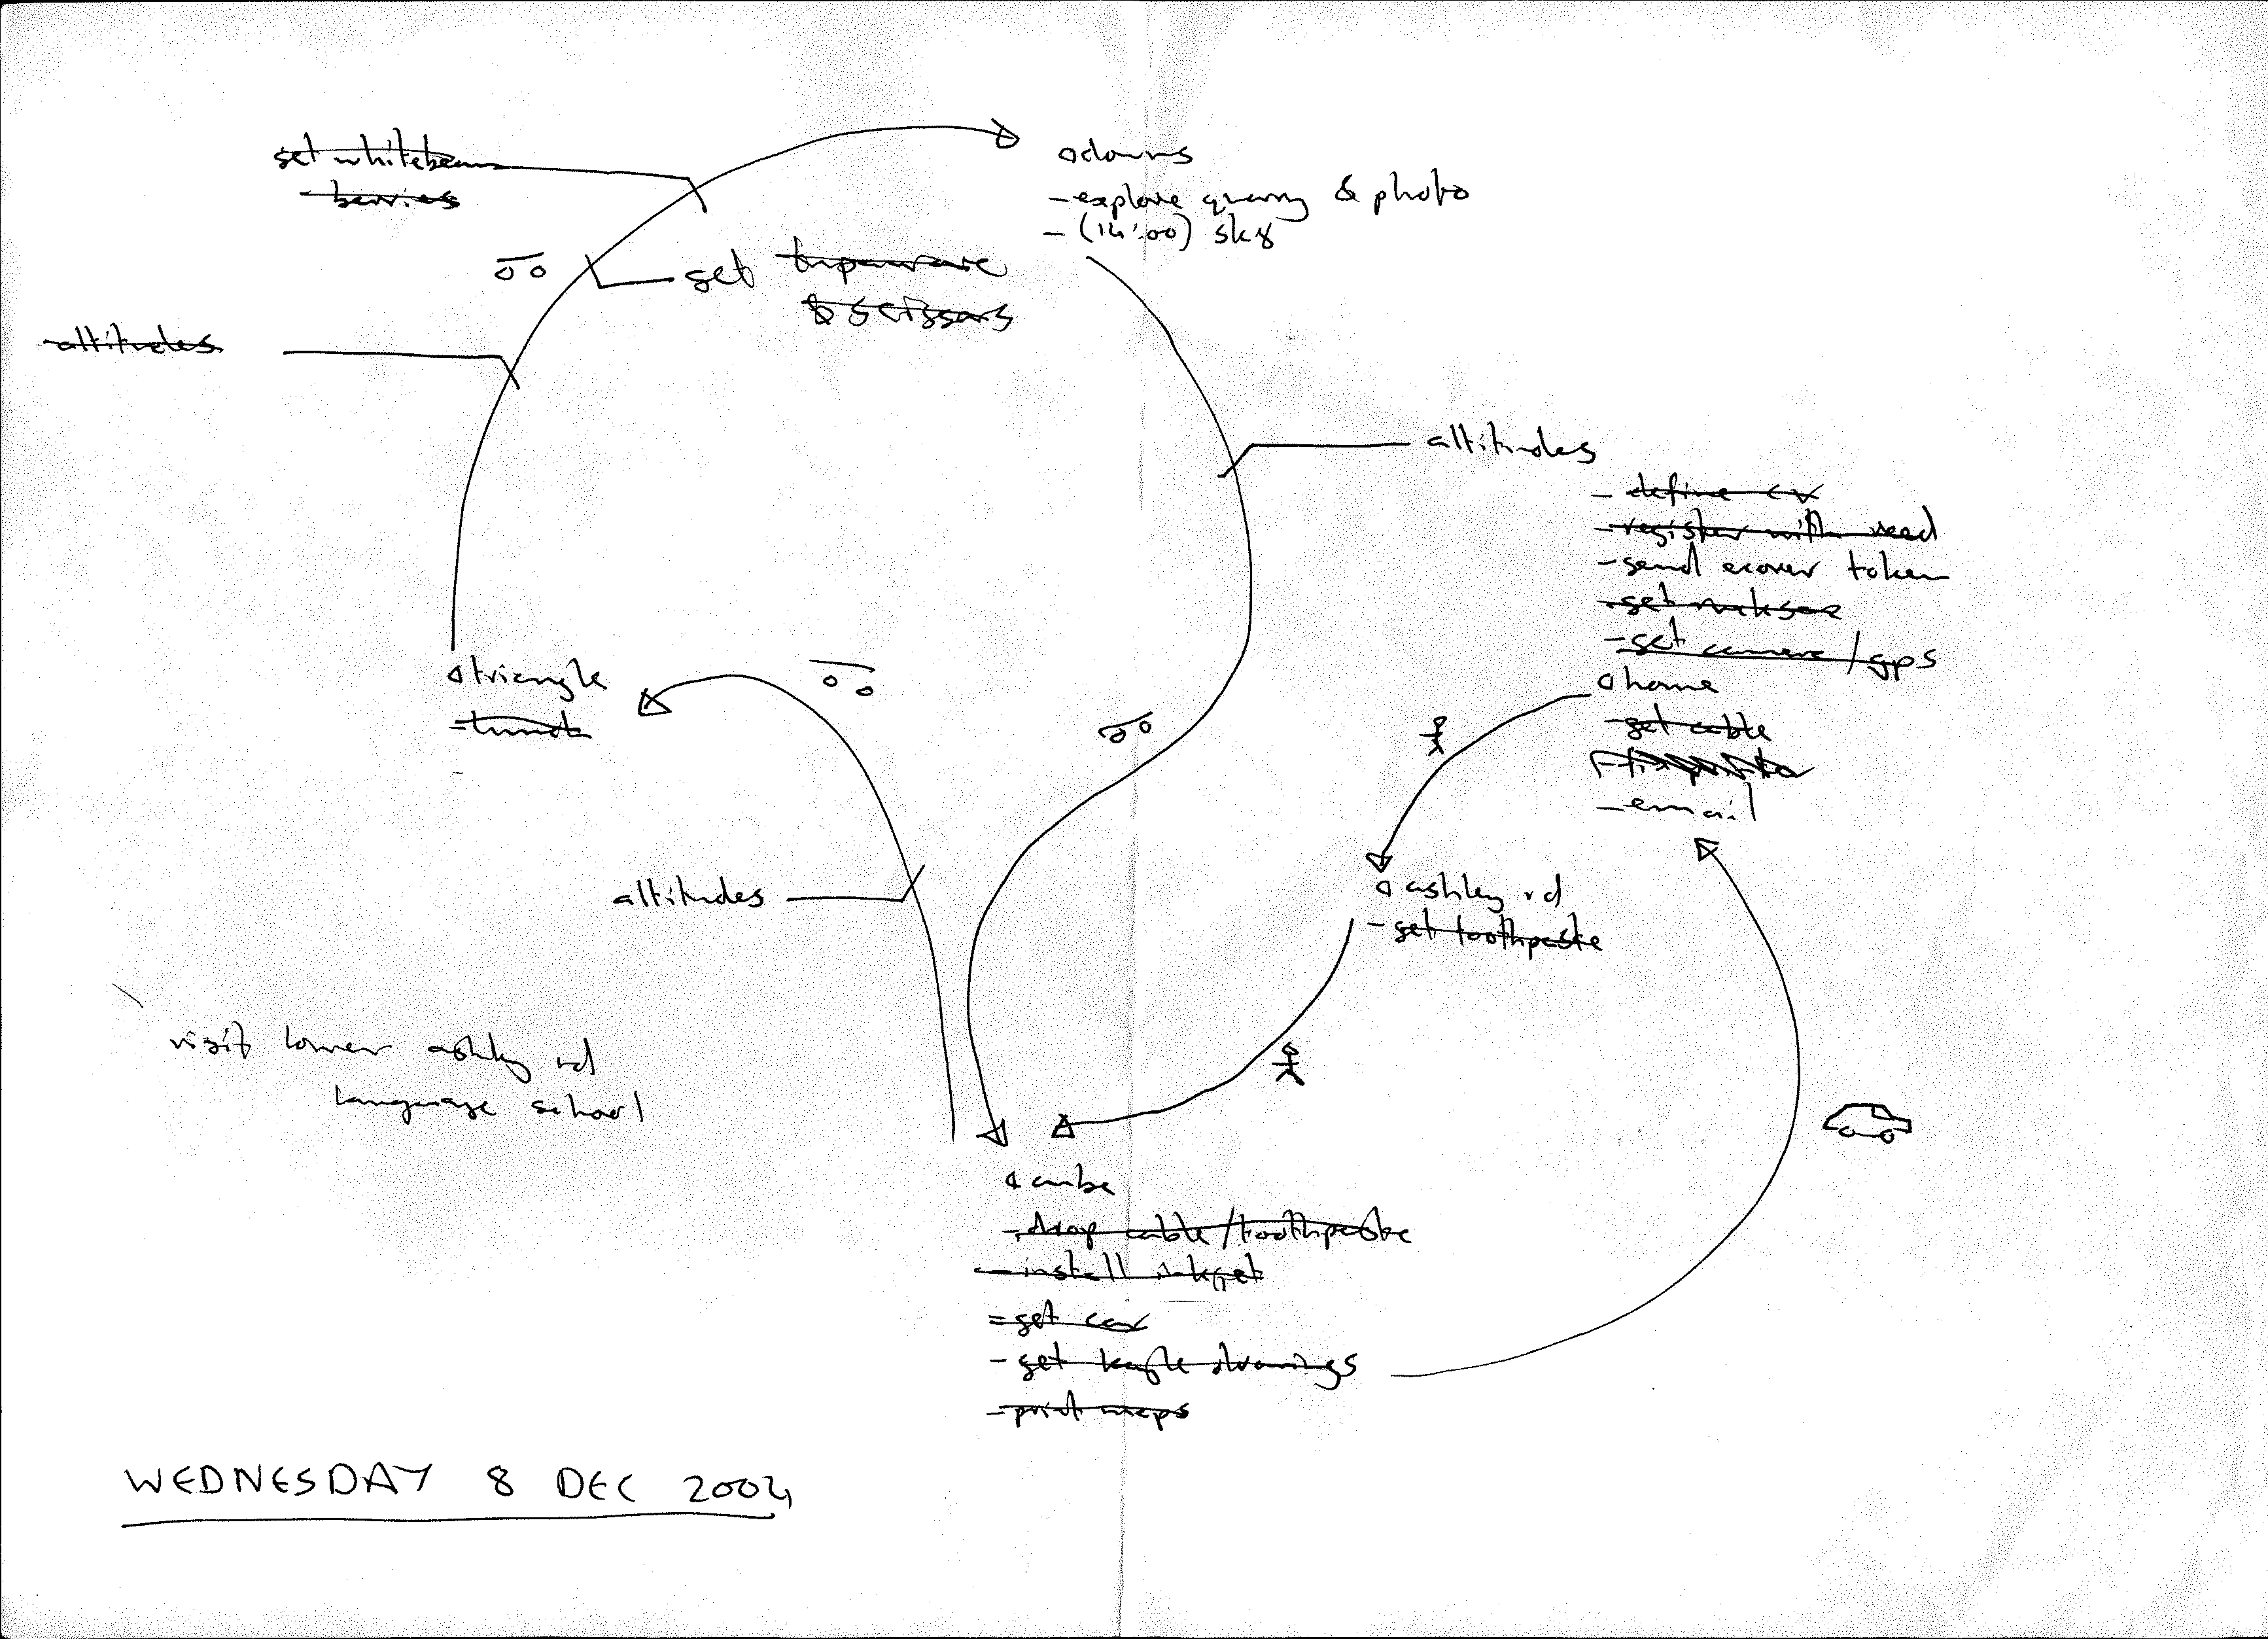 get whitebeam
- berries
downs
- explore quarry & photo
- (14:00) sk8
get tupaware
& scissors
altitudes
altitudes
- define cv
- register with reed
- send ecover token
- get ruksac
- get camera/gps
home
- get cable
- email
triangle
- lunch
altitudes
ashley rd
- get toothpaste
visit lower ashley rd
language school
cube
- drop cable/toothpaste
- install inkjet
- get car
- get drawings
- print maps
WEDNESDAY 8 DEC 2004